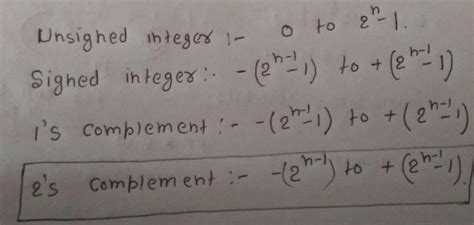 Unsigned integer :- 0 to 2ⁿ-1.
Signed integer:- -(2ⁿ⁻¹-1) to +(2ⁿ⁻¹-1)
1's complement :- -(2ⁿ⁻¹-1) to +(2ⁿ⁻¹-1)
2's complement :- -(2ⁿ⁻¹) to +(2ⁿ⁻¹-1).